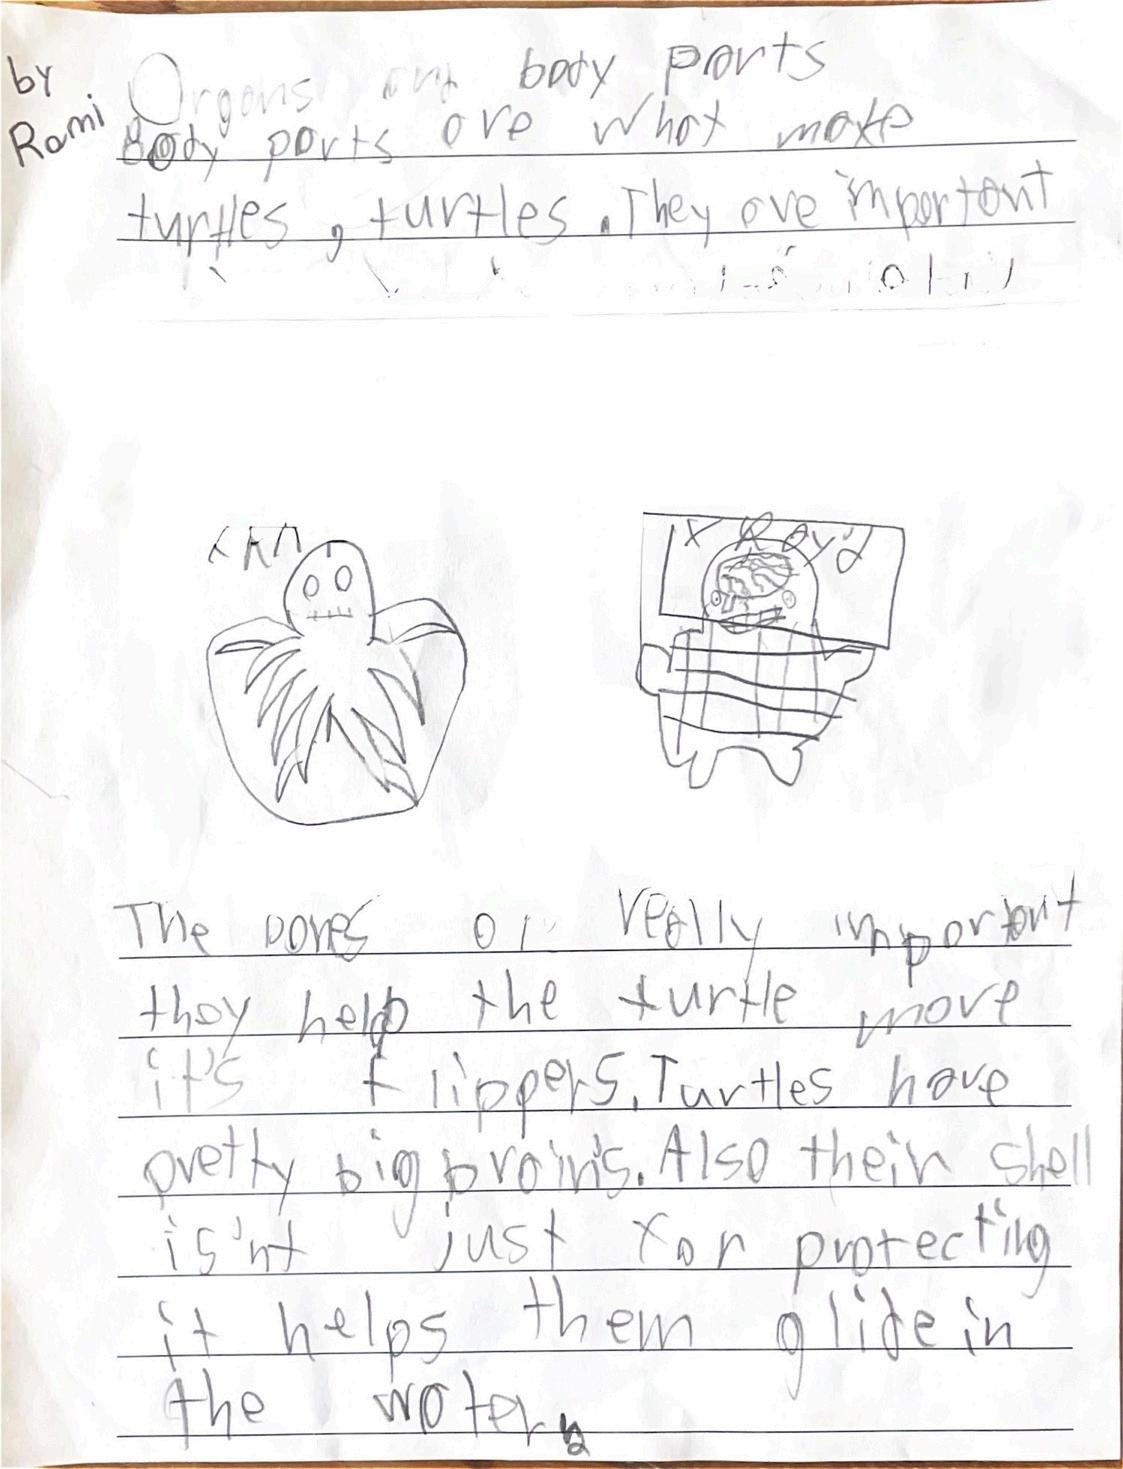 by
Rami
Organs and body parts
Body parts are what make
turtles, turtles. They are important
X Ray'd
The bones ar really important
they help the turtle move
it's flippers. Turtles have
pretty big brain's. Also their shell
is'nt just for protecting
it helps them glide in
the water.